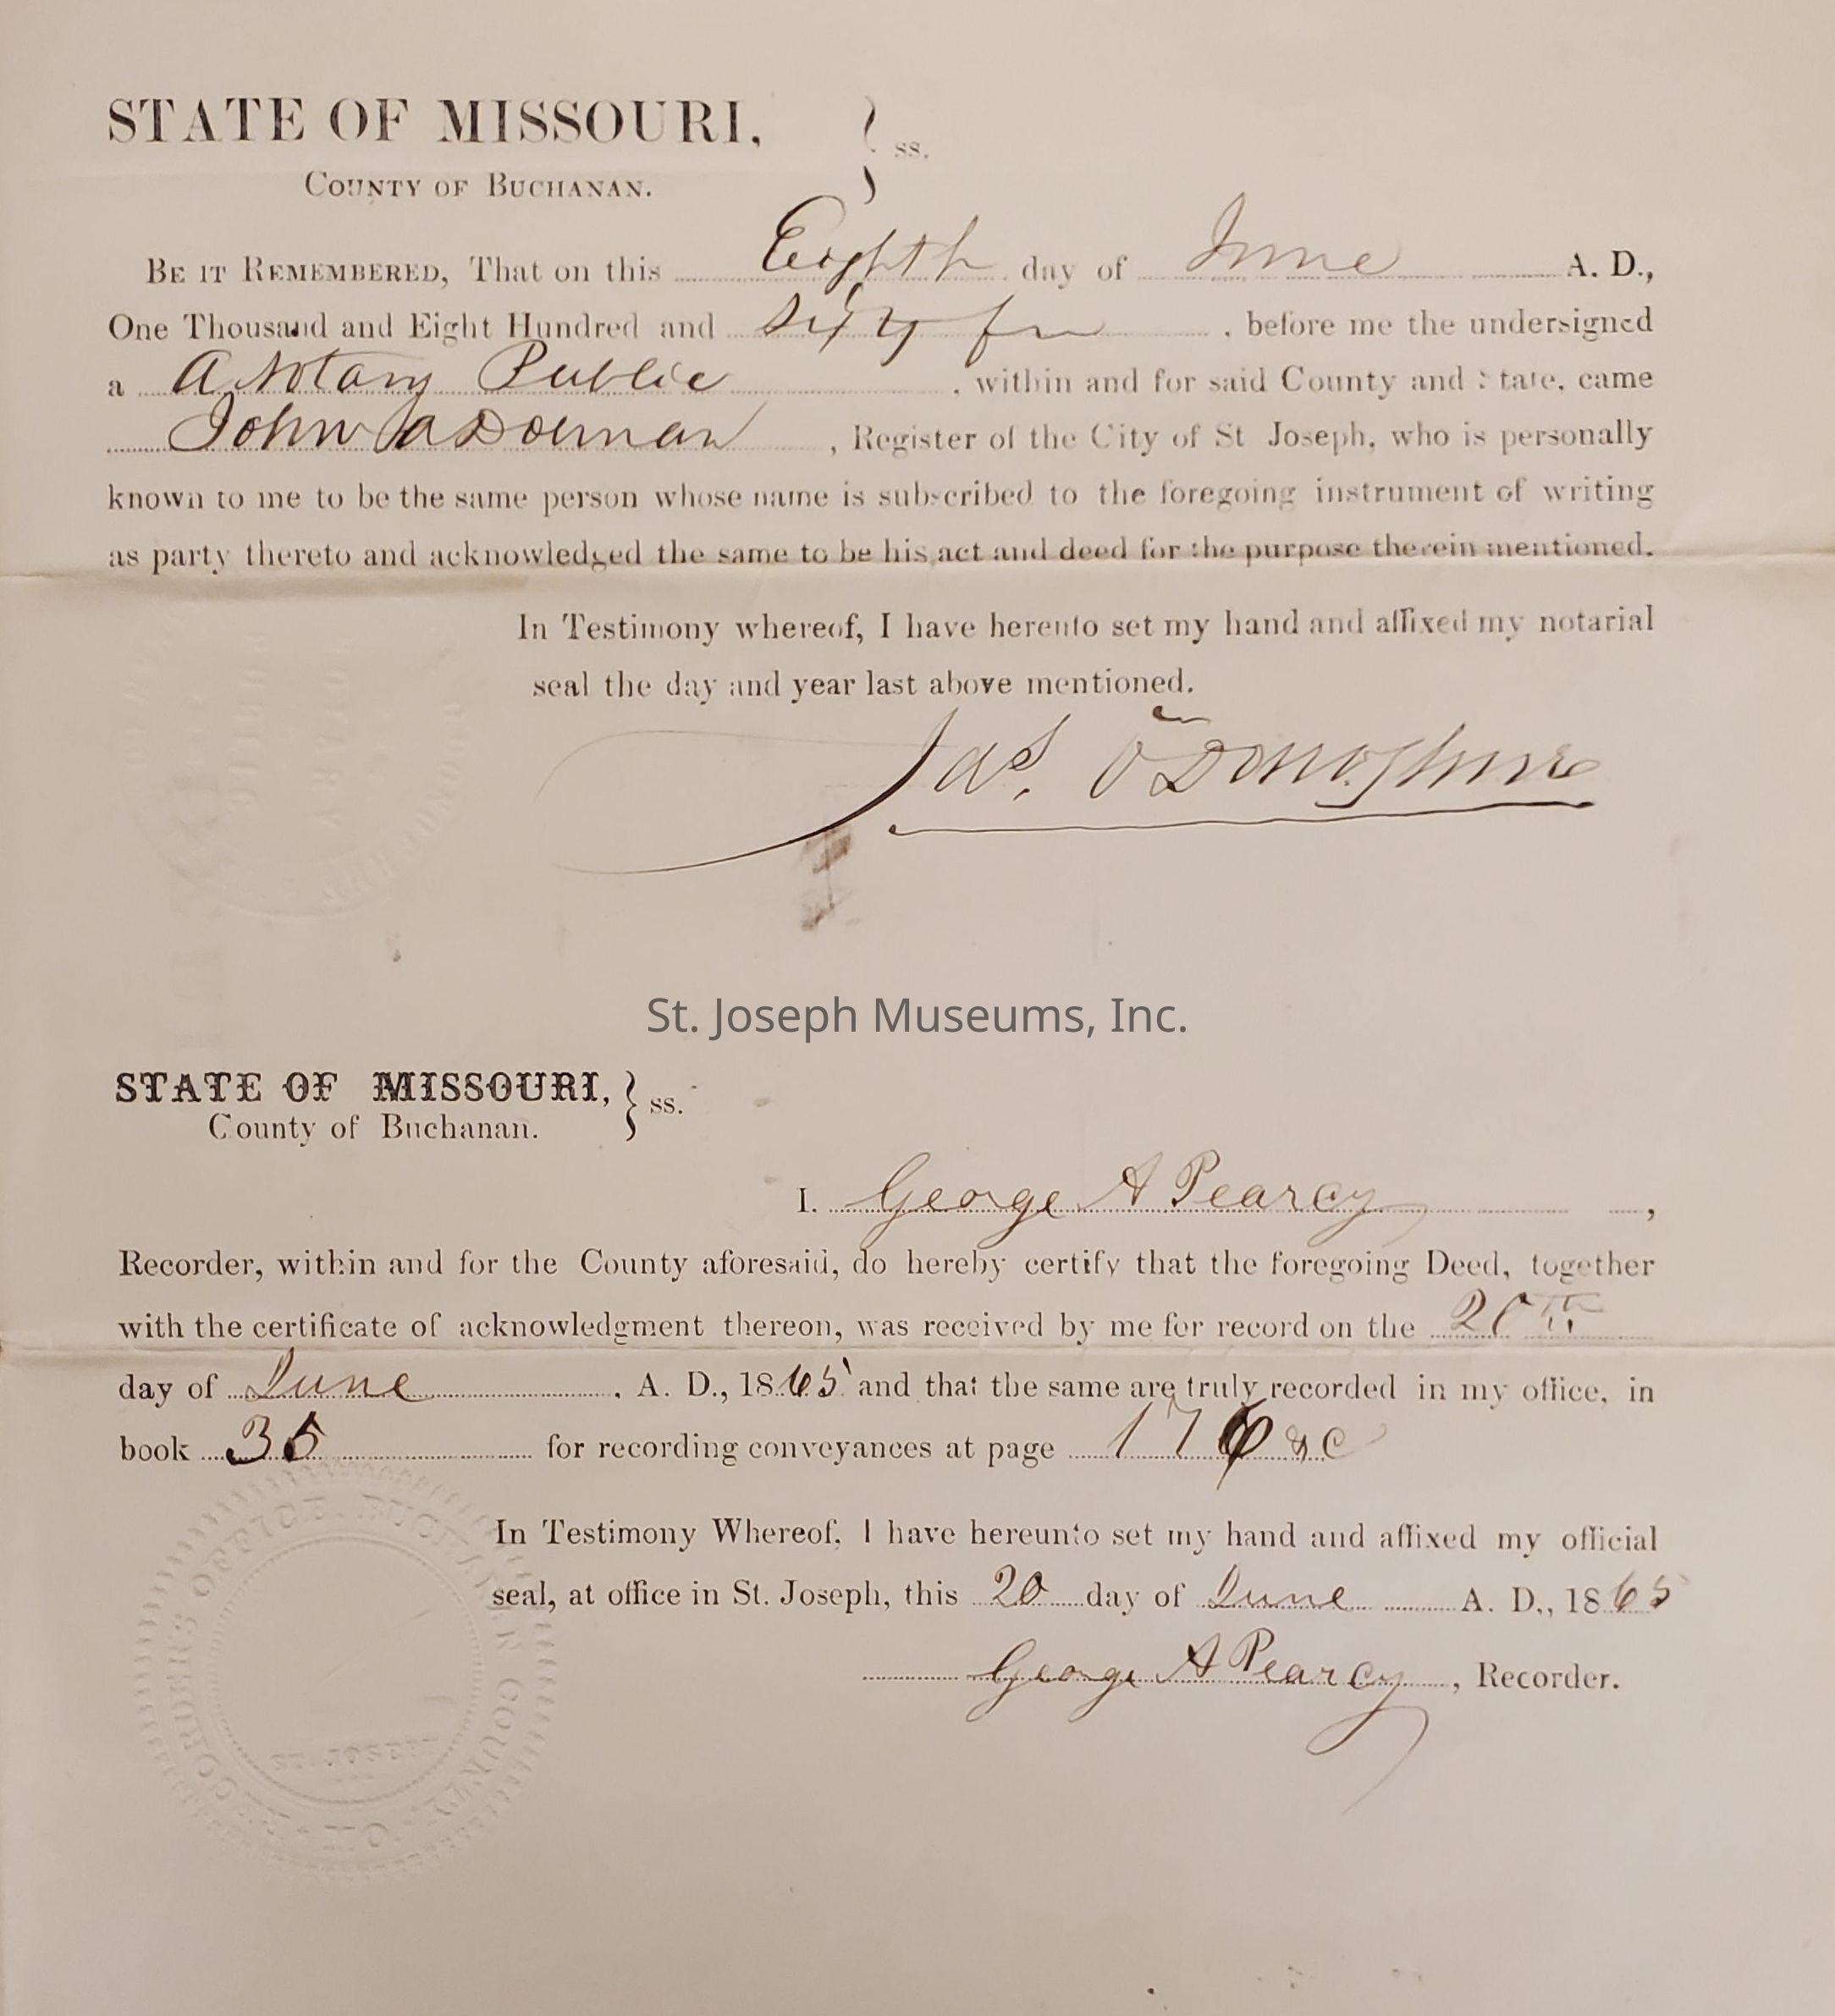 STATE OF MISSOURI, } ss.
COUNTY OF BUCHANAN.
BE IT REMEMBERED, That on this Eighth day of June A. D.,
One Thousand and Eight Hundred and Sixty , before me the undersigned
a A Notary Public , within and for said County and State, came
John A Dolman , Register of the City of St Joseph, who is personally
known to me to be the same person whose name is subscribed to the foregoing instrument of writing
as party thereto and acknowledged the same to be his act and deed for the purpose therein mentioned.
In Testimony whereof, I have hereunto set my hand and affixed my notarial
seal the day and year last above mentioned.
Jas. O'Donoghue
St. Joseph Museums, Inc.
STATE OF MISSOURI, } ss.
County of Buchanan.
I. George A Pearcy ,
Recorder, within and for the County aforesaid, do hereby certify that the foregoing Deed, together
with the certificate of acknowledgment thereon, was received by me for record on the 20th
day of June , A. D., 1865 and that the same are truly recorded in my office, in
book 35 for recording conveyances at page &c
In Testimony Whereof, I have hereunto set my hand and affixed my official
seal, at office in St. Joseph, this 20 day of June A. D., 1865
George A Pearcy , Recorder.
RECORDERS OFFICE. BUCHANAN COUNTY. MO.
ST. JOSEPH